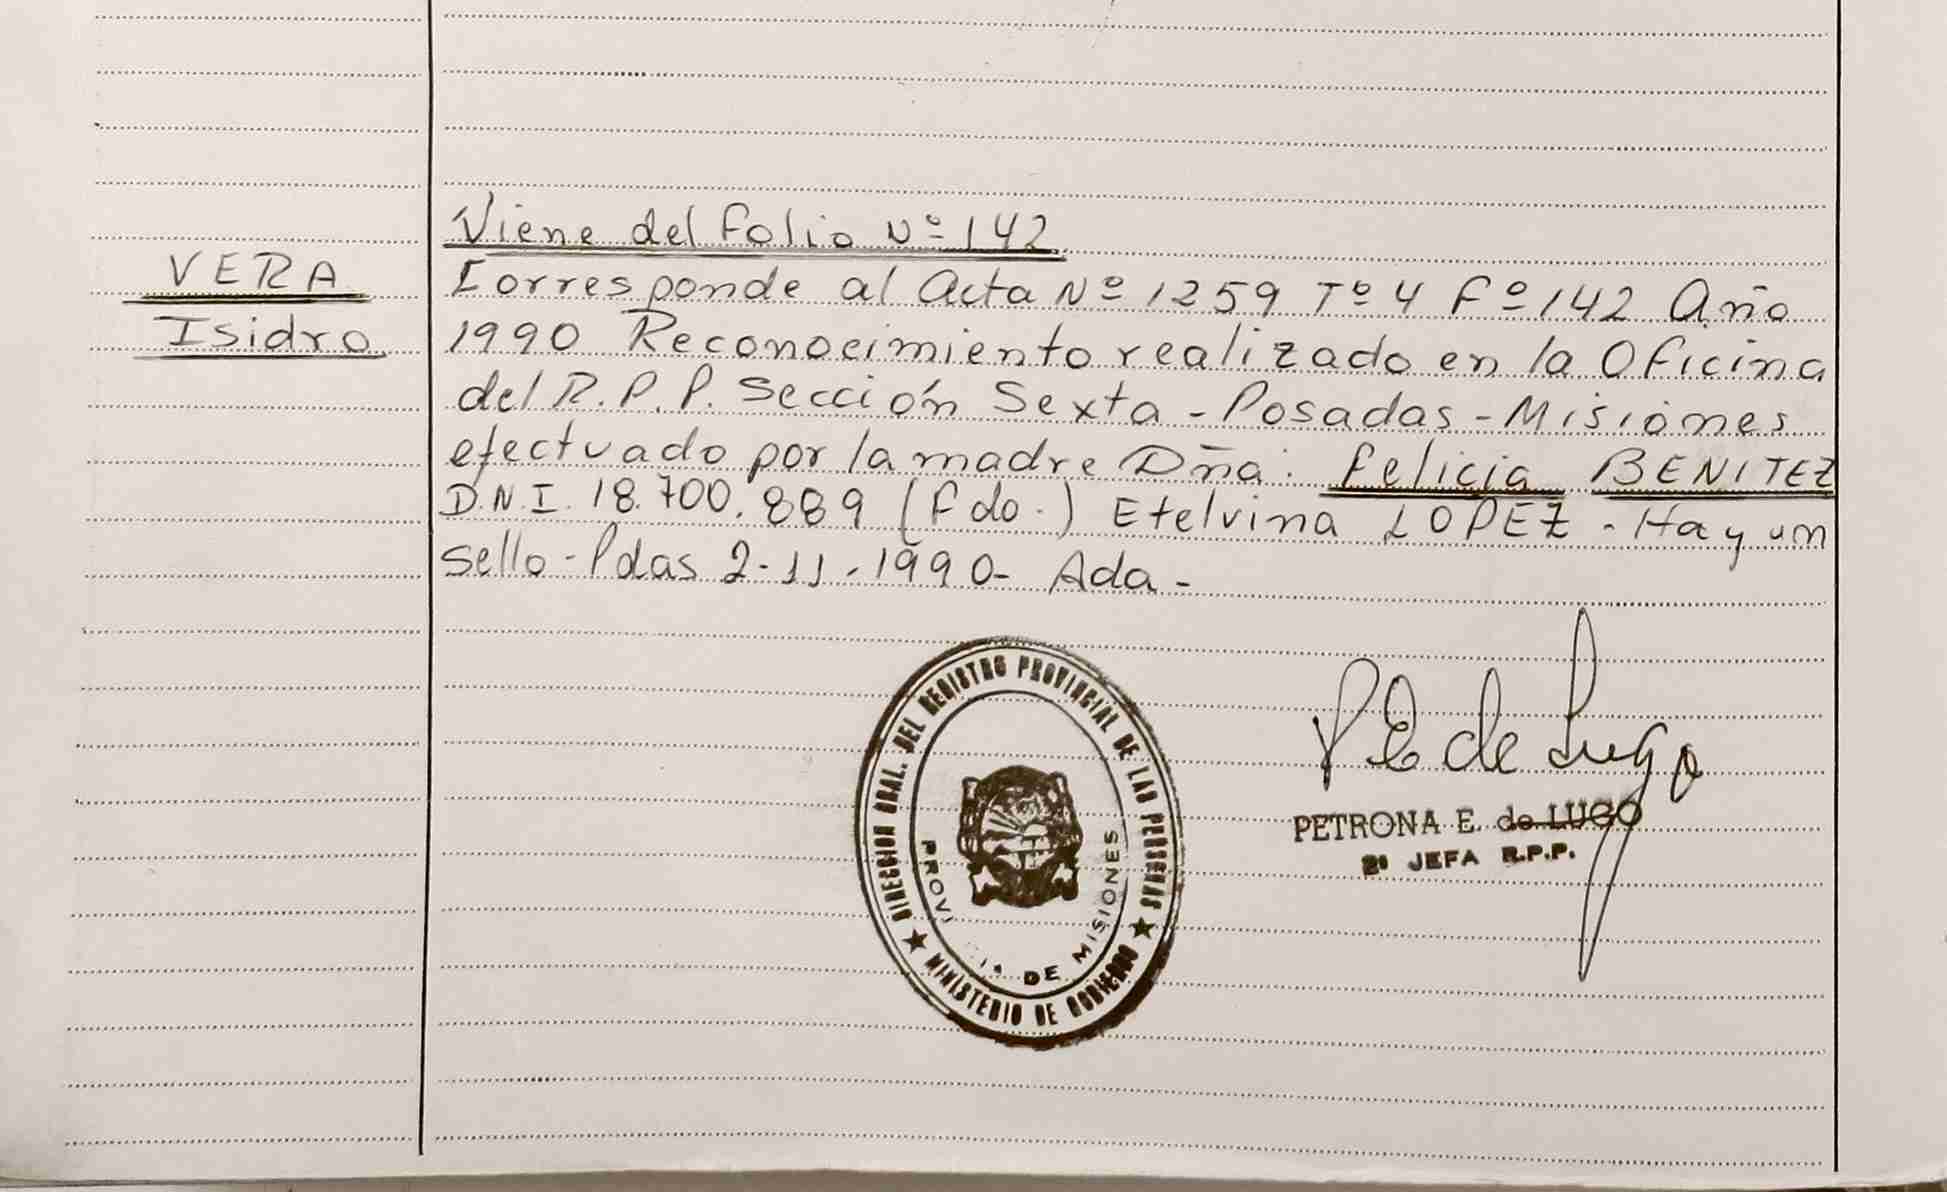 Viene del Folio Nº 142
VERA
Isidro
Corresponde al Acta Nº 1259 Tº 4 Fº 142 Año
1990 Reconocimiento realizado en la Oficina
del R.P.P. Sección Sexta - Posadas - Misiones
efectuado por la madre Dña: Felicia BENITEZ
D.N.I. 18.700.889 (Fdo.) Etelvina LOPEZ - Hay un
sello - Pdas 2-11-1990- Ada -
DIRECCION GRAL. DEL REGISTRO PROVINCIAL DE LAS PERSONAS
MINISTERIO DE GOBIERNO
DE MISIONES
P E de Lugo
PETRONA E. de LUGO
2º JEFA R.P.P.